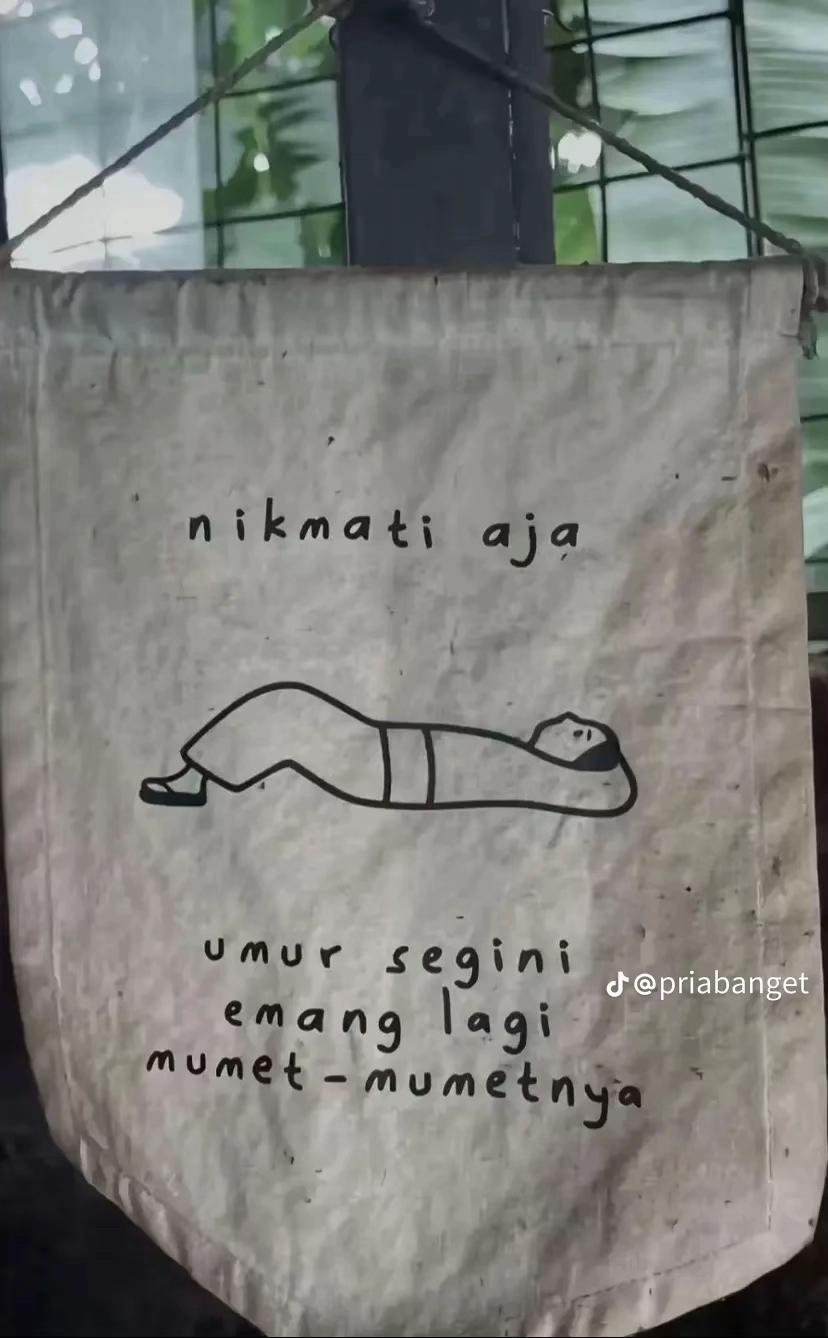 nikmati aja
umur segini
@priabanget
emang lagi
mumet-mumetnya